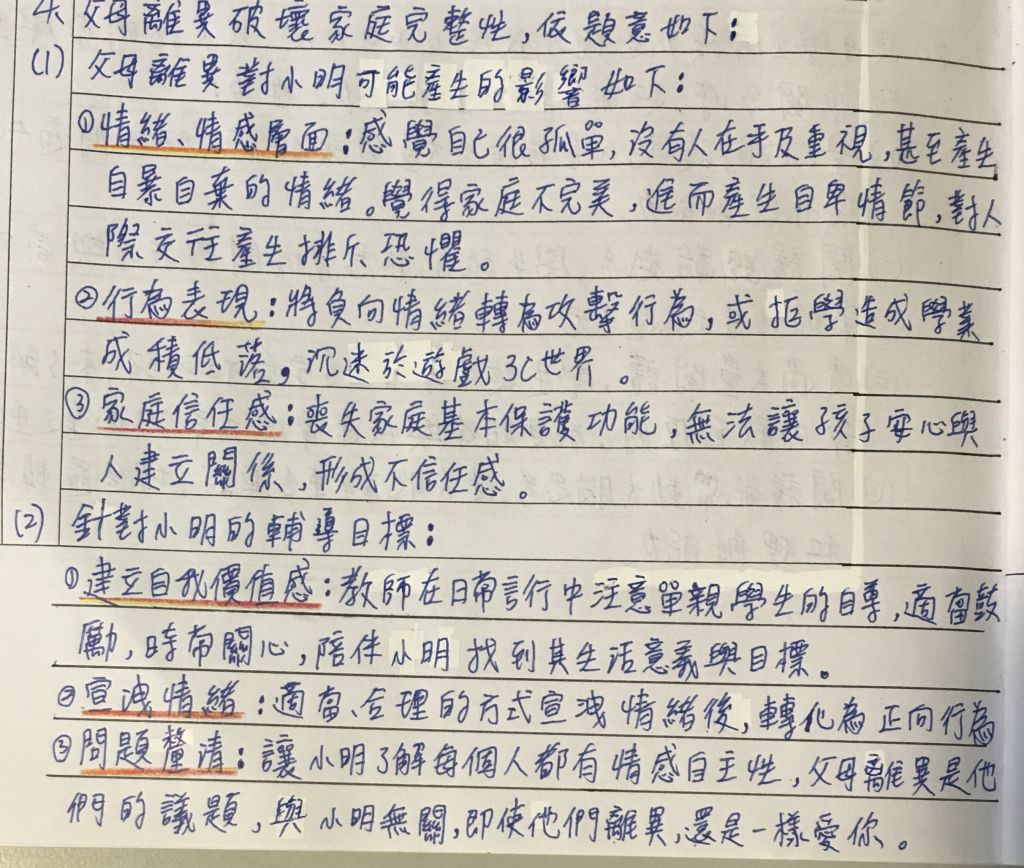 4. 父母離異破壞家庭完整性,依題意如下:
(1) 父母離異對小明可能產生的影響如下:
①情緒、情感層面:感覺自己很孤單,沒有人在乎及重視,甚至產生
自暴自棄的情緒。覺得家庭不完美,進而產生自卑情節,對人
際交往產生排斥恐懼。
②行為表現:將負向情緒轉為攻擊行為,或拒學造成學業
成積低落,沉迷於遊戲3C世界。
③家庭信任感:喪失家庭基本保護功能,無法讓孩子安心與
人建立關係,形成不信任感。
(2) 針對小明的輔導目標:
①建立自我價值感:教師在日常言行中注意單親學生的自尊,適當鼓
勵,時常關心,陪伴小明找到其生活意義與目標。
②宣洩情緒:適當、合理的方式宣洩情緒後,轉化為正向行為
③問題釐清:讓小明了解每個人都有情感自主性,父母離異是他
們的議題,與小明無關,即使他們離異,還是一樣愛你。